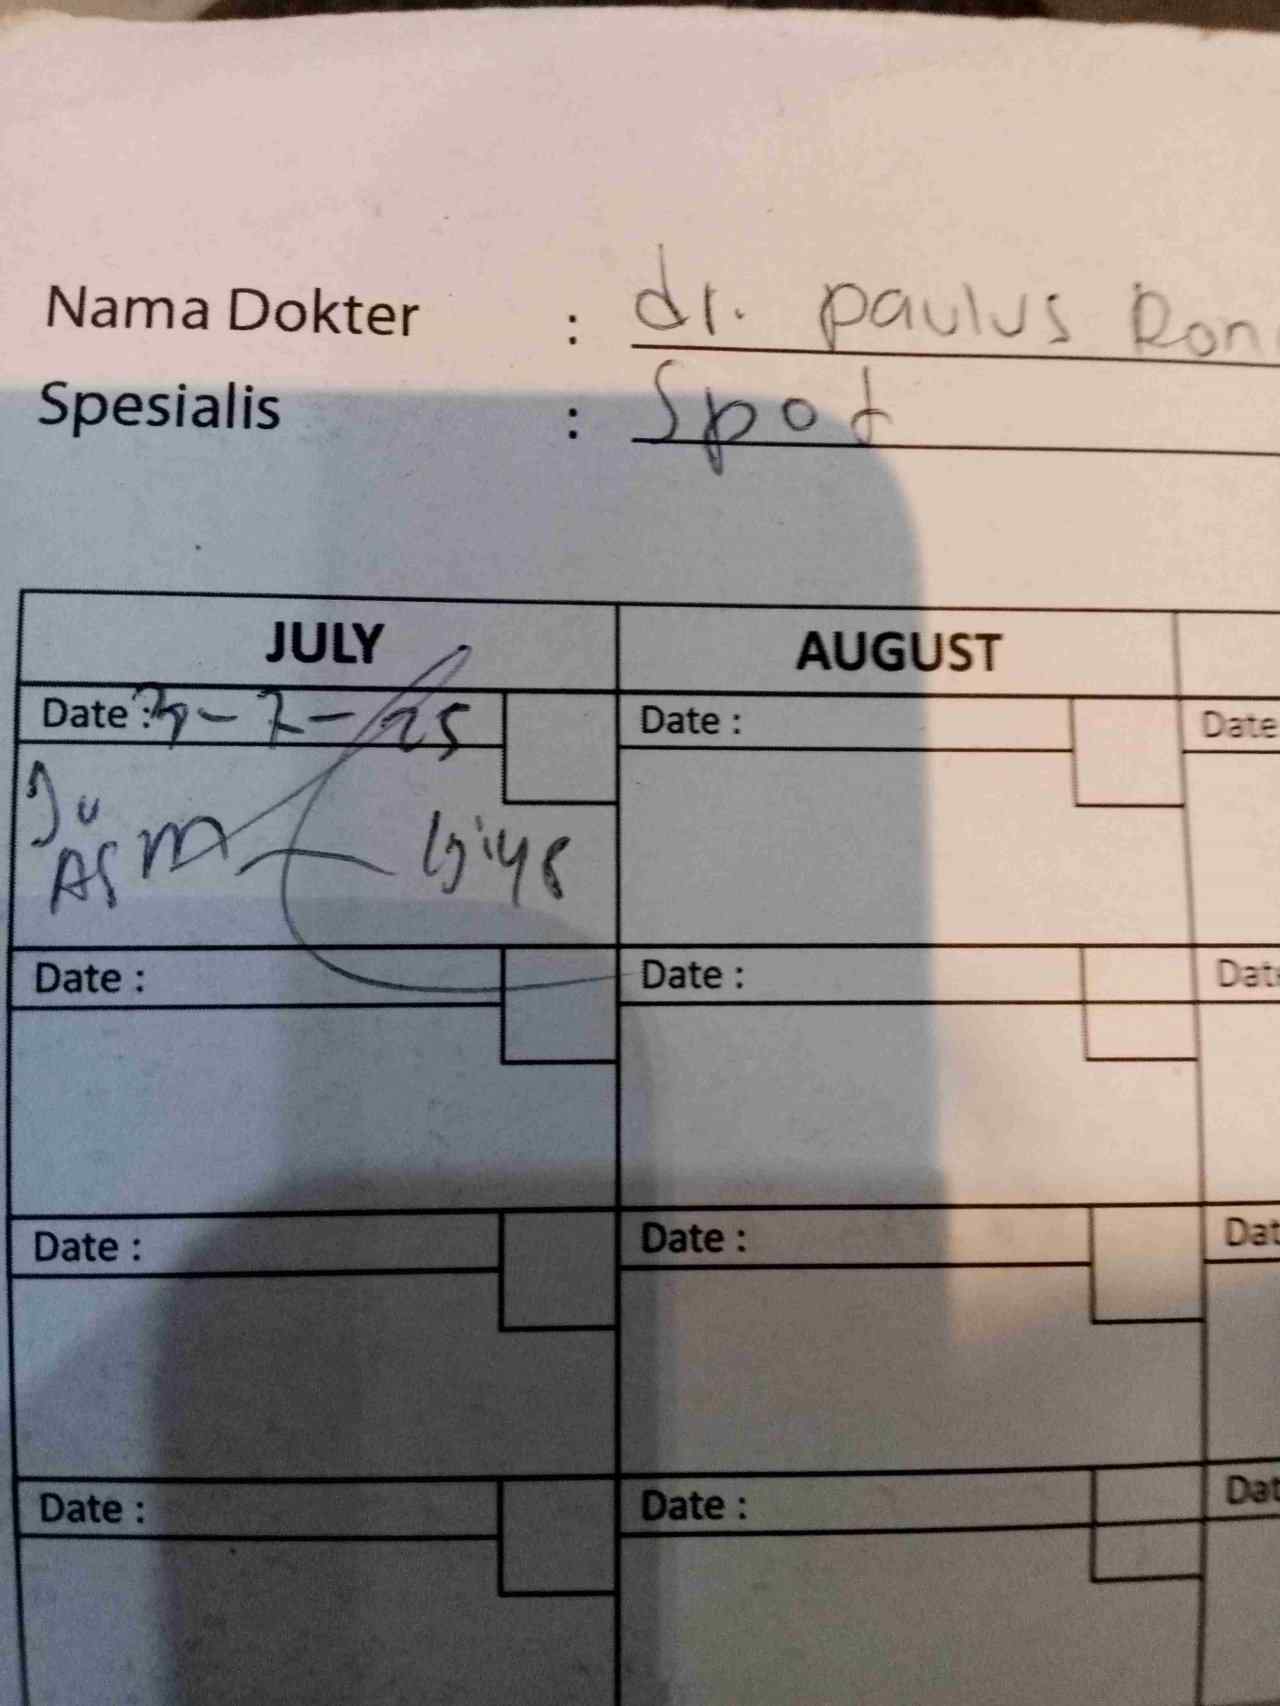 Nama Dokter : dr. paulus Roni
Spesialis : Spot
JULY AUGUST
Date : -7-25 Date : Date
Date : Date : Date
Date : Date : Dat
Date : Date : Dat